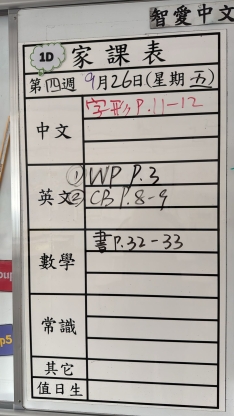 智愛中文
1D 家課表
第四週 9月26日(星期五)
中文 字形 P.11-12
英文 ① WP P.3
② CB P.8-9
數學 書P.32-33
常識
其它
值日生
oup
p5